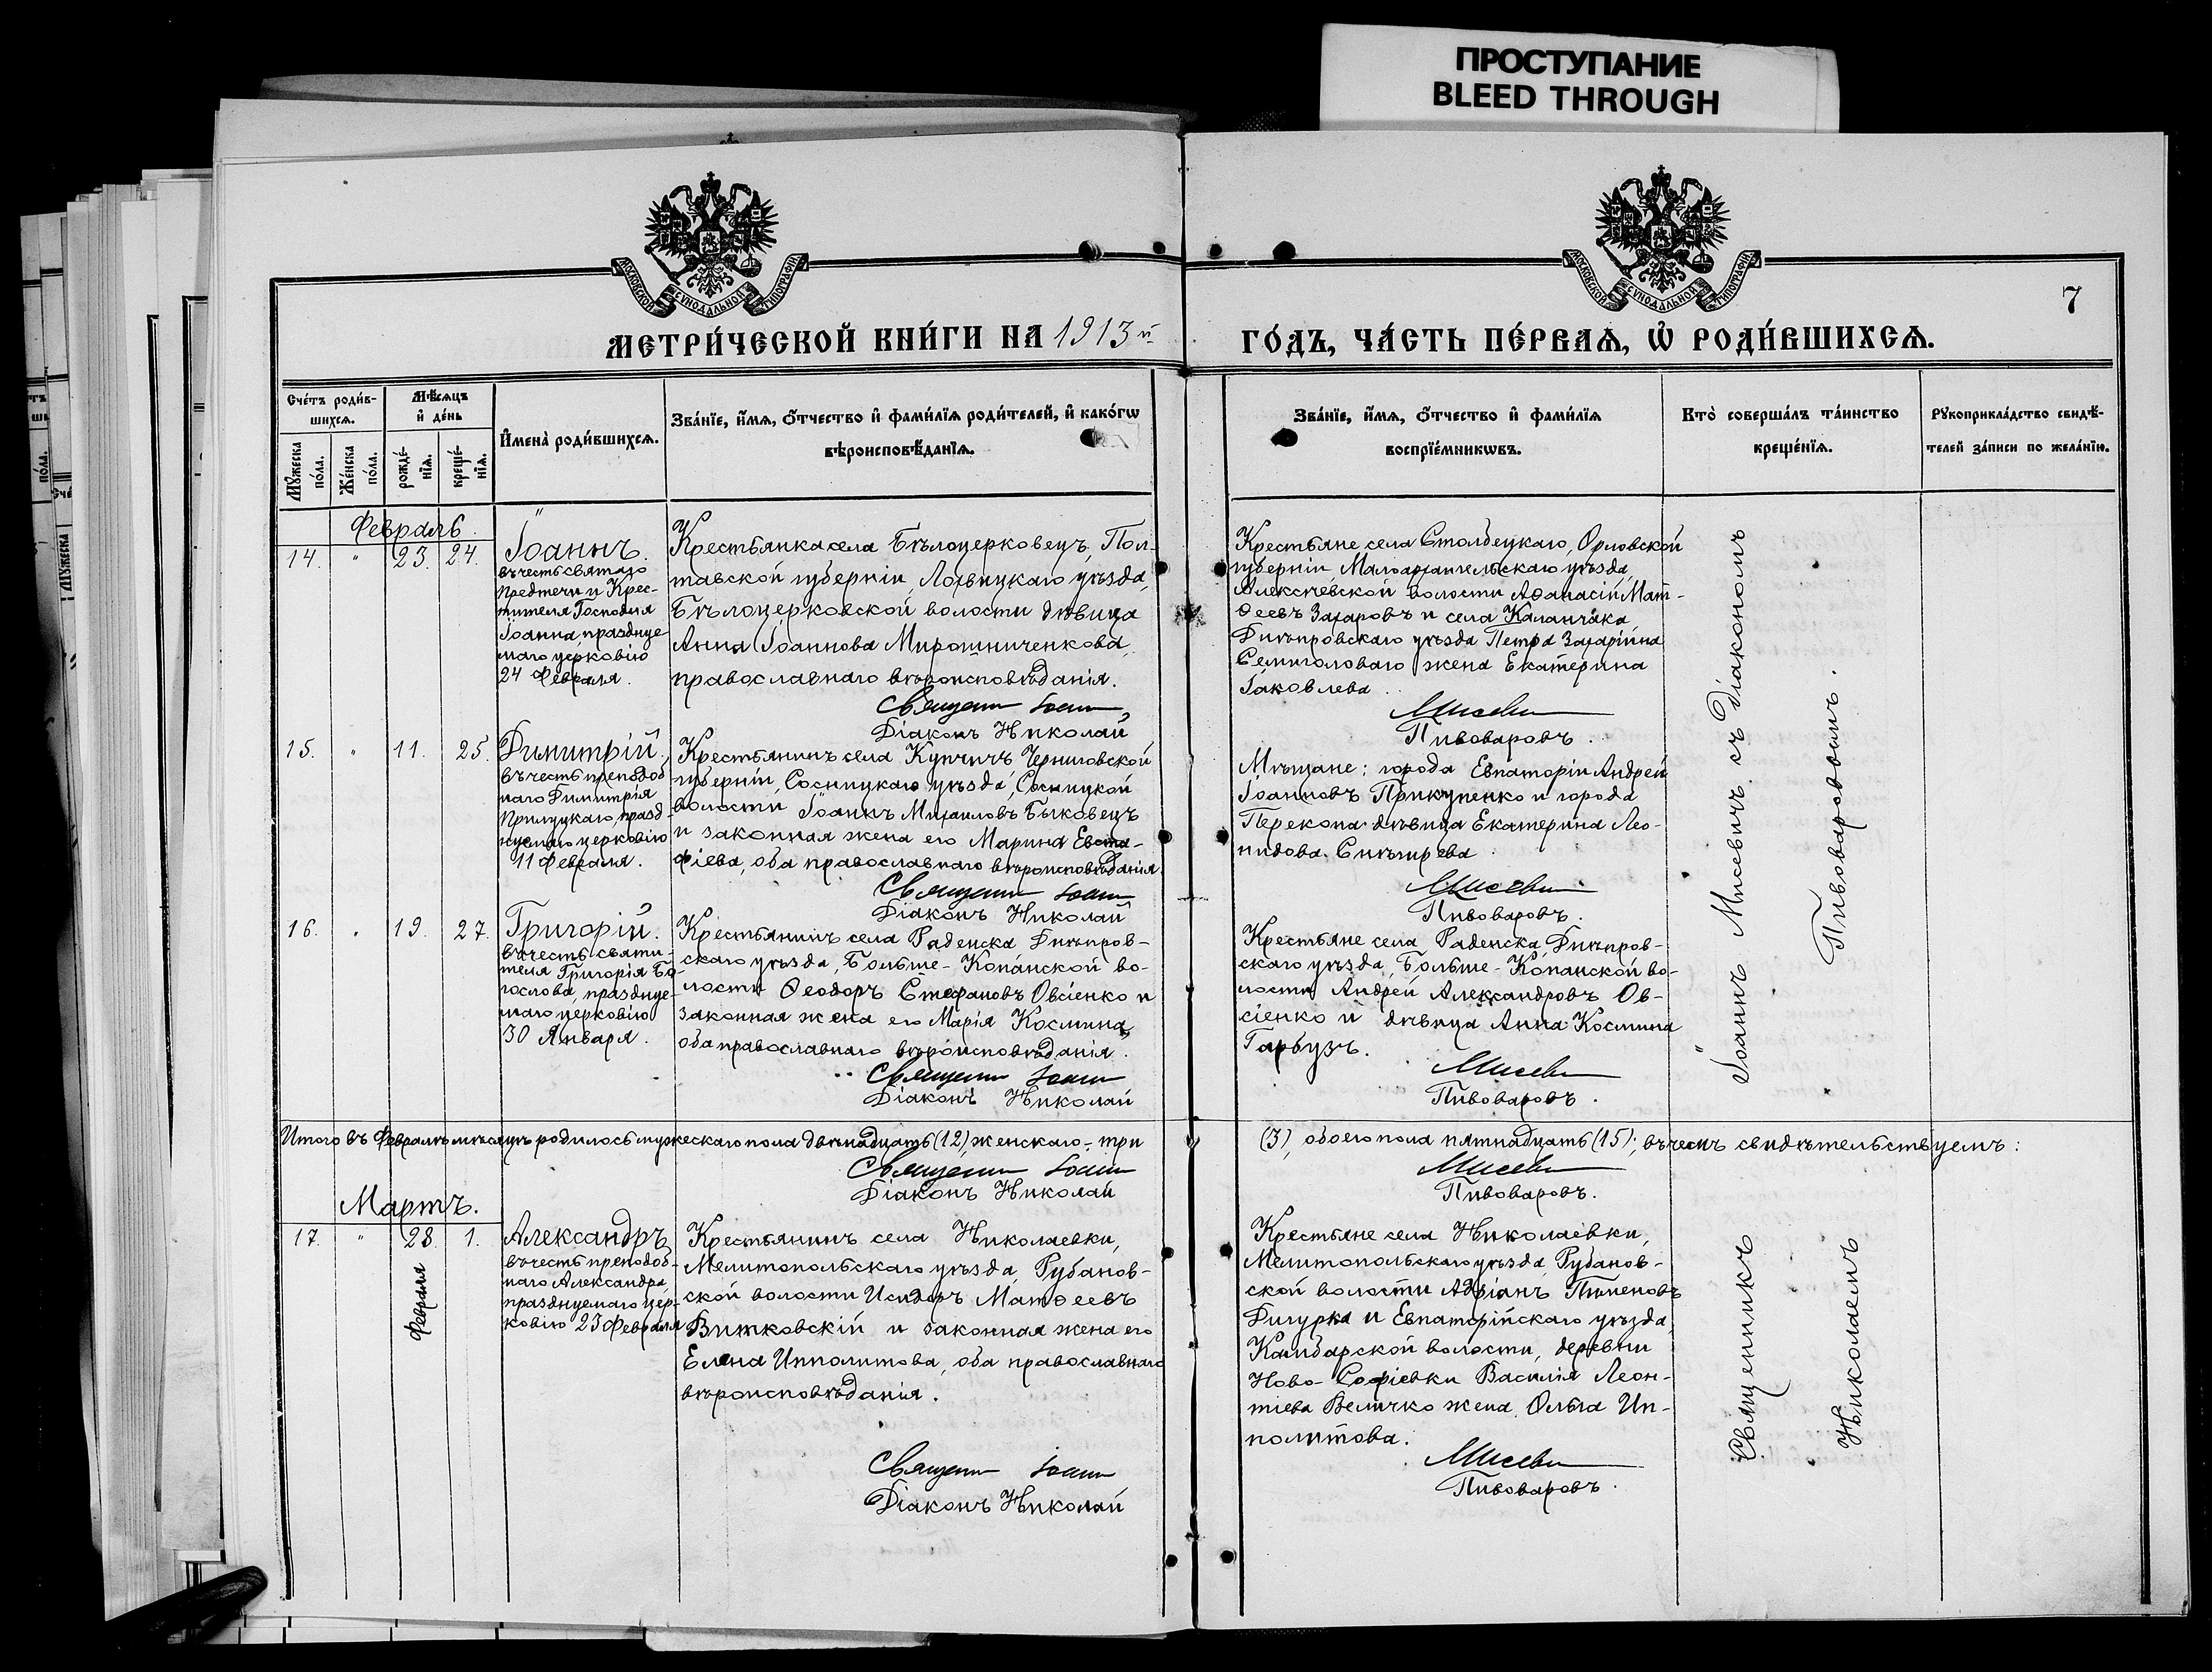 ПРОСТУПАНИЕ
BLEED THROUGH
МОСКОВСКОЙ СУНОДАЛЬНОЙ ТИПОГРАФІИ
МОСКОВСКОЙ СУНОДАЛЬНОЙ ТИПОГРАФІИ
7
МЕТРИ́ЧЕСКОЙ КНИ́ГИ НА 1913 й
ГО́ДЪ, ЧА́СТЬ ПЕ́РВАѦ, Ѡ РОДИ́ВШИХСѦ.
Сче́тъ роди́в-
шихсѧ.
Мꙋ́жеска по́ла.
Же́нска по́ла.
Мѣ́сяцъ
и҆ де́нь
рожде́-
нїѧ.
креще́-
нїѧ.
И҆мена̀ роди́вшихсѧ.
Зва́нїе, и҆́мѧ, ѻ҆́тчество и҆ фами́лїѧ роди́телей, и҆ како́гѡ
вѣроисповѣ́данїѧ.
Зва́нїе, и҆́мѧ, ѻ҆́тчество и҆ фами́лїѧ
воспрїе́мникѡвъ.
Кто̀ соверша́лъ та́инство
креще́нїѧ.
Рꙋкоприкла́дство свидѣ́-
телей за́писи по жела́нїю.
Февраль
14. " 23. 24.
Іоаннъ.
въ честь святаго
Предтечи и Крес-
тителя Господня
Іоанна празднуе-
маго церковію
24 Февраля.
Крестьянка села Бѣлоцерковецъ, Пол-
тавской губерніи, Лохвицкаго уѣзда,
Бѣлоцерковской волости дѣвица
Анна Іоаннова Мирошниченкова,
православнаго вѣроисповѣданія.
Священн Іоанн
Діаконъ Николай
Крестьяне села Столбецкаго, Орловской
губерніи, Малоархангельскаго уѣзда,
Алексѣевской волости Аѳанасій Мат-
ѳеевъ Захаровъ и села Каланчака
Днѣпровскаго уѣзда Петра Захаріина
Семиголоваго жена Екатерина
Іаковлева.
Мисевич
Пивоваровъ.
Іоаннъ Мисевичъ съ Діакономъ
Пивоваровымъ.
15. " 11. 25.
Димитрій.
въ честь преподоб
наго Димитрія
Прилуцкаго, празд-
нуемаго церковію
11 Февраля.
Крестьянинъ села Купчичъ Черниговской
губерніи, Сосницкаго уѣзда, Сосницкой
волости Іоаннъ Михаиловъ Быковецъ
и законная жена его Марина Евста-
фіева, оба православнаго вѣроисповѣданія.
Священн Іоанн
Діаконъ Николай
Мѣщане: города Евпаторіи Андрей
Іоанновъ Прикупенко и города
Перекопа дѣвица Екатерина Лео-
нидова Снѣгирева.
Мисевич
Пивоваровъ.
16. " 19. 27.
Григорій.
въ честь святи-
теля Григорія Бо-
гослова, празднуе-
маго церковію
30 Января.
Крестьянинъ села Раденска Днѣпров-
скаго уѣзда, Больше-Копанской во-
лости Ѳеодоръ Стефановъ Овсіенко и
законная жена его Марія Космина,
оба православнаго вѣроисповѣданія.
Священн Іоанн
Діаконъ Николай
Крестьяне села Раденска, Днѣпров-
скаго уѣзда, Больше-Копанской во-
лости Андрей Александровъ Ов-
сіенко и дѣвица Анна Космина
Гарбузъ.
Мисевич
Пивоваровъ.
Итого въ Февралѣ мѣсяцѣ родилось мужескаго пола двѣнадцать (12), женскаго - три
(3), обоего пола пятнадцать (15); въ чемъ свидѣтельствуемъ:
Священн Іоанн
Діаконъ Николай
Мисевич
Пивоваровъ.
Мартъ.
17. " 28. 1.
Февраля
Александръ
въ честь преподоб-
наго Александра,
празднуемаго цер-
ковію 23 Февраля
Крестьянинъ села Николаевки,
Мелитопольскаго уѣзда, Рубанов-
ской волости Исидоръ Матѳеевъ
Витковскій и законная жена его
Елена Ипполитова, оба православнаго
вѣроисповѣданія.
Священн Іоанн
Діаконъ Николай
Крестьяне села Николаевки,
Мелитопольскаго уѣзда, Рубанов-
ской волости Адріанъ Пименовъ
Дигурка и Евпаторійскаго уѣзда,
Камбарской волости, деревни
Ново-Софіевки Василія Леон-
тіева Величко жена Ольга Ип-
политова.
Мисевич
Пивоваровъ.
Священникъ
Николаемъ